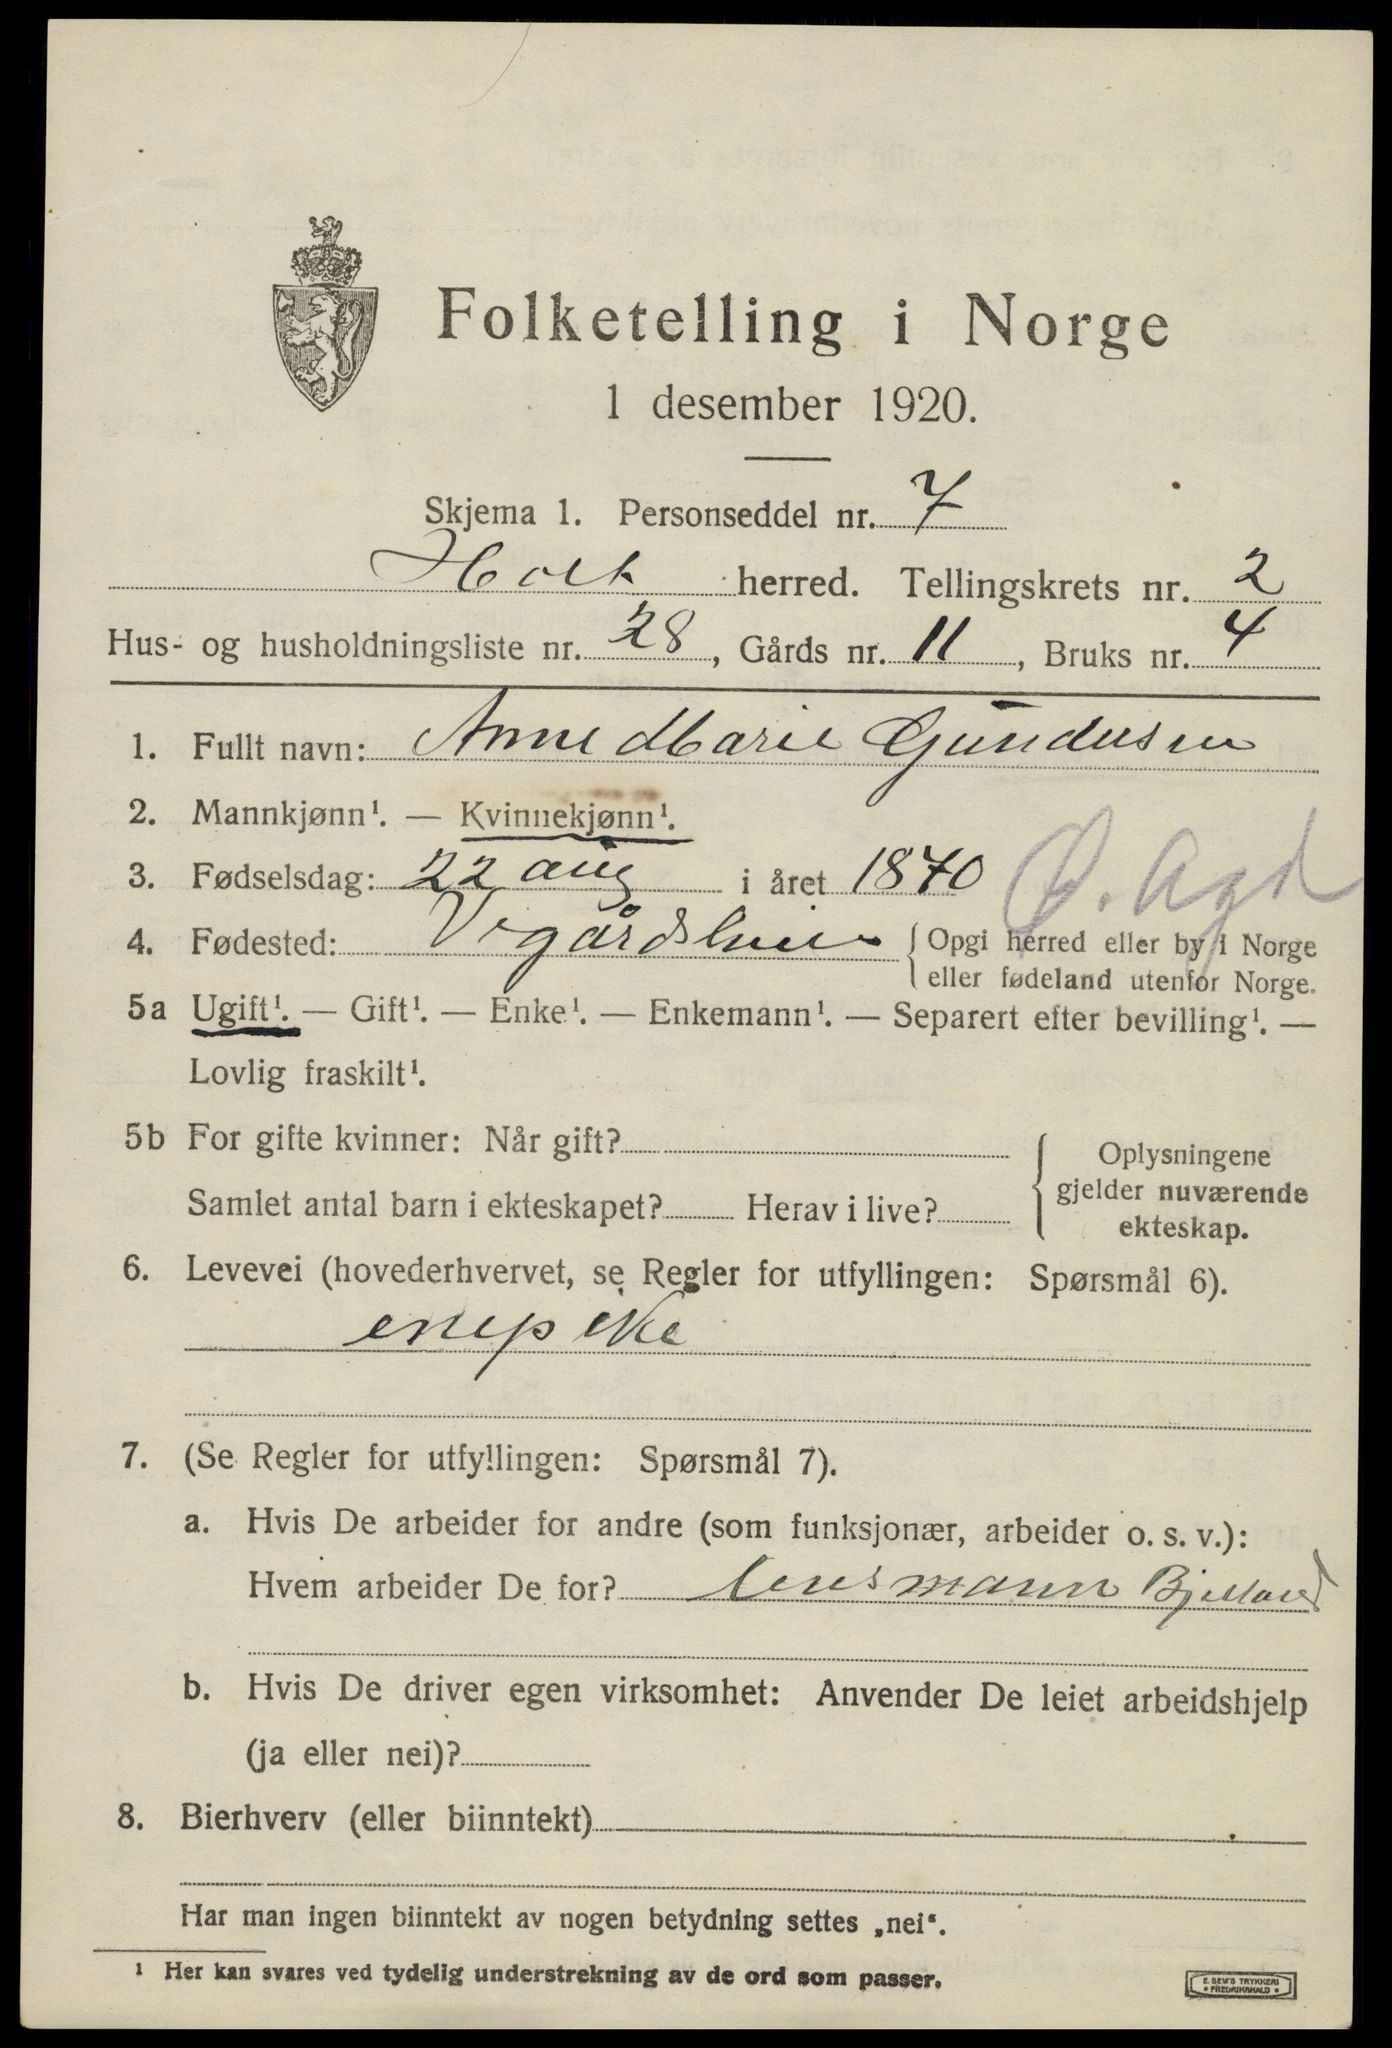 Folketelling i Norge
1 desember 1920.
Skjema 1. Personseddel nr. 7
Holt herred. Tellingskrets nr. 2
Hus- og husholdningsliste nr. 28, Gårds nr. 11, Bruks nr. 4
1. Fullt navn: Anne Marie Gundersen
2. Mannkjønn¹. — Kvinnekjønn¹.
3. Fødselsdag: 22 aug i året 1870
Ø. Agd
4. Fødested: Vegårdsheien { Opgi herred eller by i Norge
eller fødeland utenfor Norge.
5a Ugift¹. — Gift¹. — Enke¹. — Enkemann¹. — Separert efter bevilling¹. —
Lovlig fraskilt¹.
5b For gifte kvinner: Når gift?
Samlet antal barn i ekteskapet? Herav i live?
{ Oplysningene
gjelder nuværende
ekteskap.
6. Levevei (hovederhvervet, se Regler for utfyllingen: Spørsmål 6).
enepike
7. (Se Regler for utfyllingen: Spørsmål 7).
a. Hvis De arbeider for andre (som funksjonær, arbeider o. s. v.):
Hvem arbeider De for? lensmann Bjelland
b. Hvis De driver egen virksomhet: Anvender De leiet arbeidshjelp
(ja eller nei)?
8. Bierhverv (eller biinntekt)
Har man ingen biinntekt av nogen betydning settes „nei“.
¹ Her kan svares ved tydelig understrekning av de ord som passer.
E. SEM'S TRYKKERI
• FREDRIKSHALD •